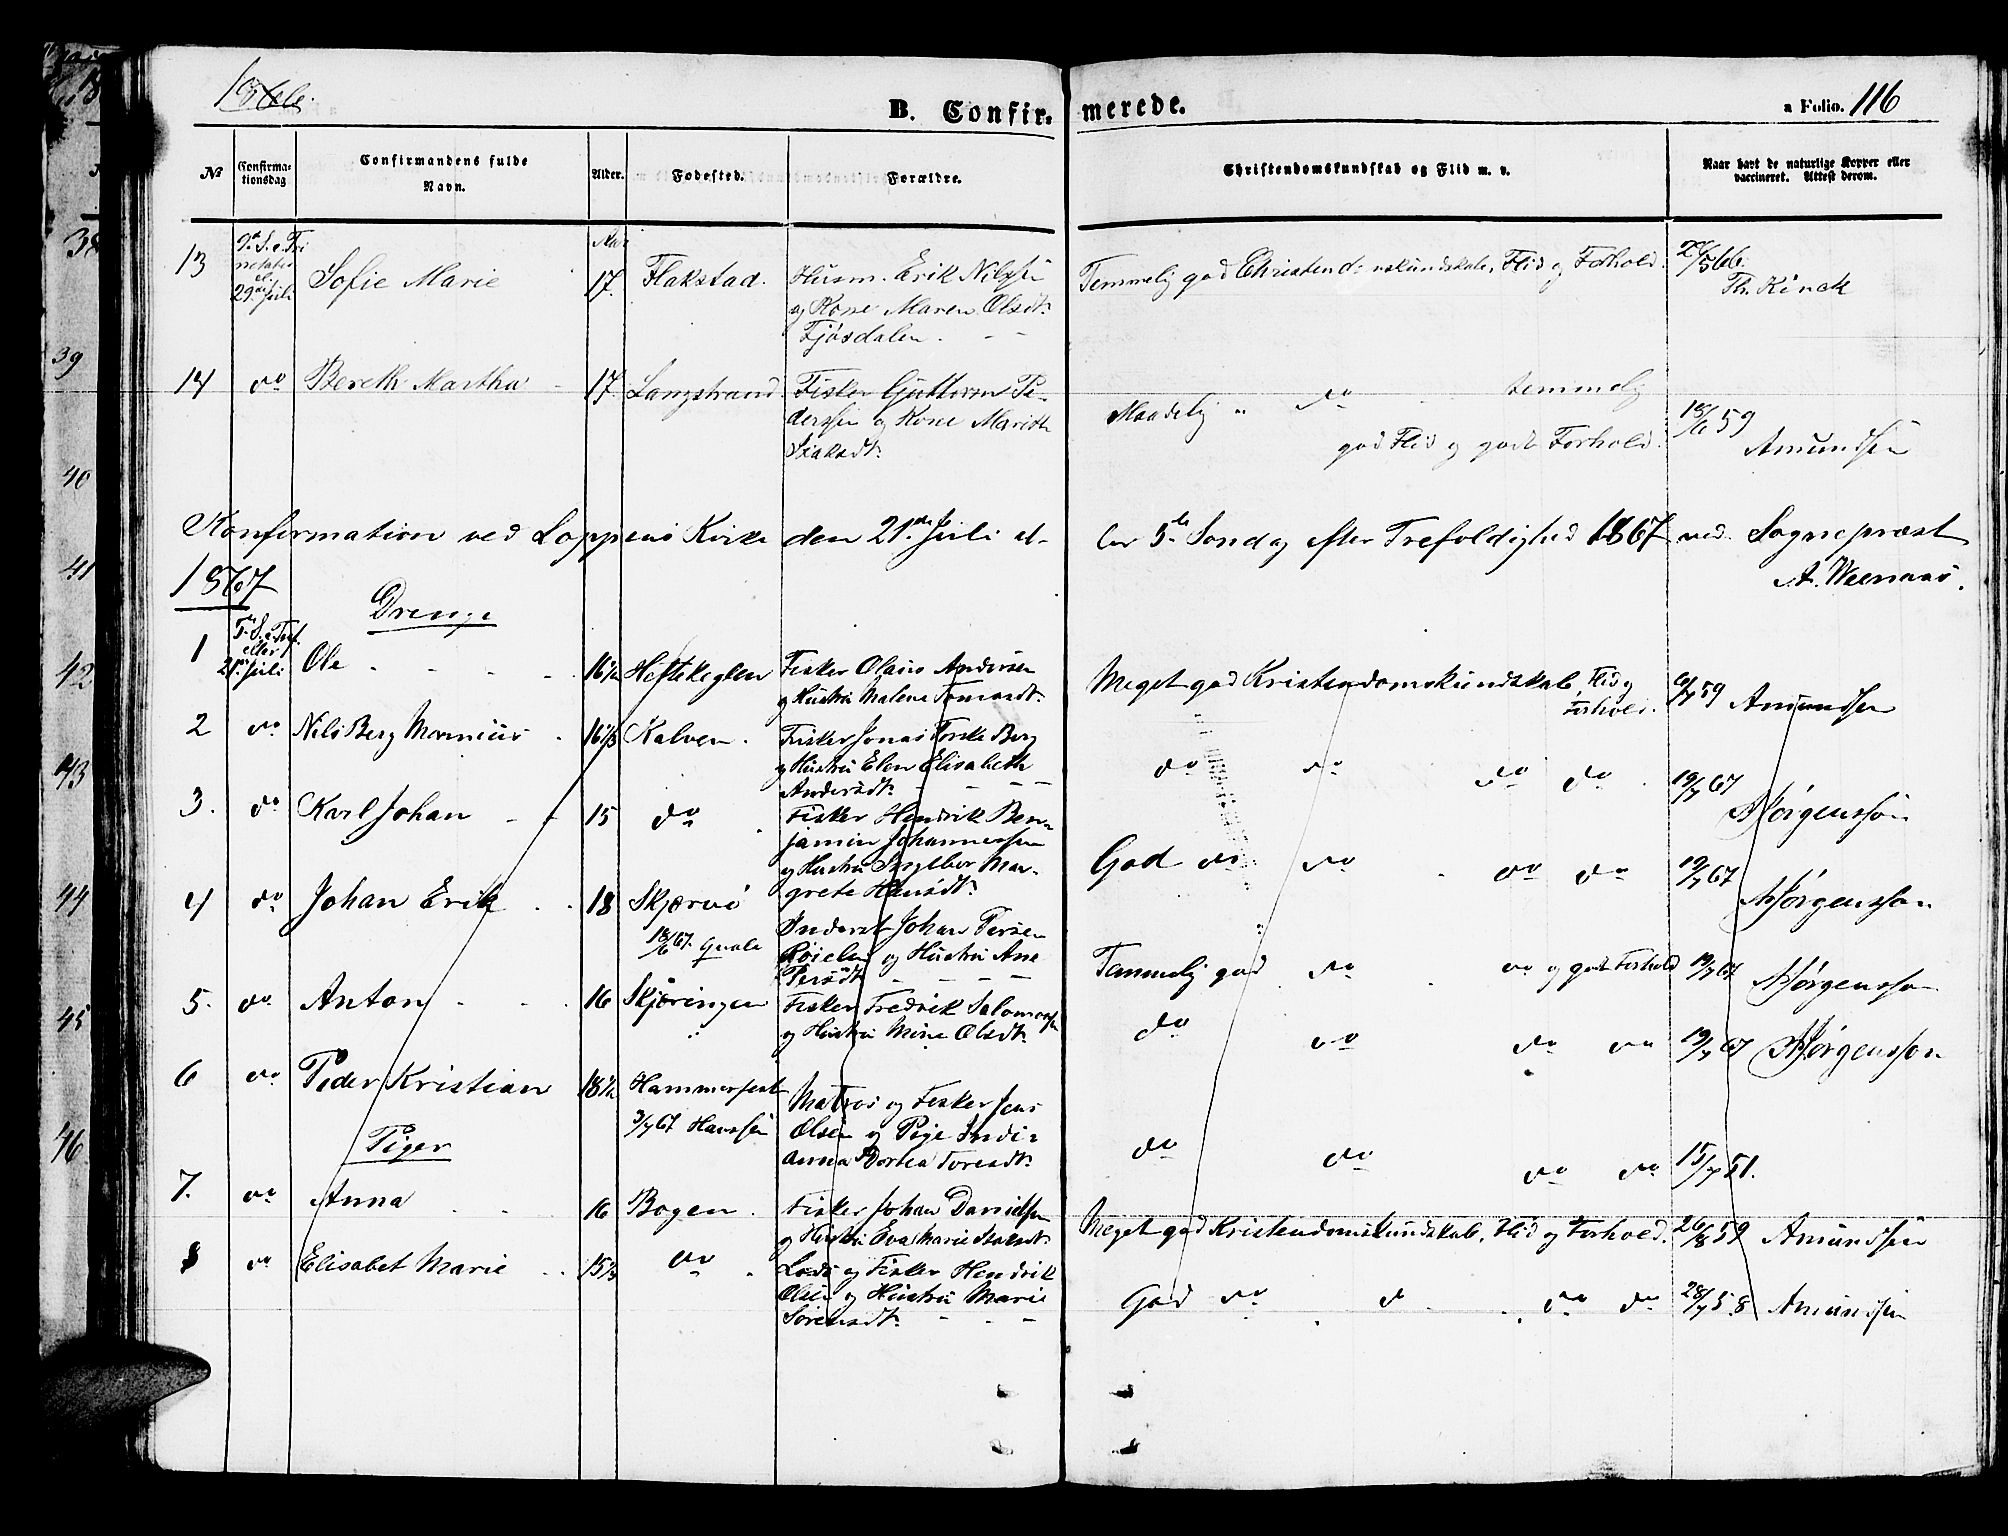 1866.
B. Confir-
merede.
a Folio. 116
No
Confirma-
tionsdag
Confirmandens fulde
Navn.
Alder.
Fødested.
Forældre.
Christendomskundskab og Flid m. v.
Naar havt de naturlige Kopper eller
vaccineret. Attest derom.
13
9de S. e. Tri
el.
29de Juli
Sofie Marie
Aar
17.
Flakstad.
Husm. Erik Nilssen
og Kone Maren Olsdt:
Fjösdalen.
Temmelig god Christend:mskundskab, Flid og Forhold.
Th. Kinck
14
do
Bereth Martha
17.
Langstrand
Fisker Guttorm Pe-
derssen og Kone Marith
Isaksdt:
Maadelig " do temmelig
god Flid og godt Forhold.
18/6 59
Amundsen
Konfirmation ved Loppens Kirke den 21de Juli el-
ler 5te Søndag efter Trefoldighed 1867 ved Sognepræst
A. Weenaas.
1867
Drenge
1
5te S. e. Tref.
eller
21de Juli
Ole
16 1/2
Heftekeglen
Fisker Olaus Andersen
og Hustru Malene Tomasdt:
Meget god Kristendomskundskab, Flid og
Forhold.
6/7 59
Amundsen
2
do
Nils Berg Marnius
16 1/3
Kalven.
Fisker Jonas Torske Berg
og Hustru Elen Elisabeth
Andersdt:
do do do do
19/7 67
Jörgensson
3.
do
Karl Johan
15
do
Fisker Hendrik Ben-
jamin Johannessen
og Hustru Ingebor Mar-
grete Hansdt:
God do do do do
19/7 67
Jörgensson
4
do
Johan Erik
18
Skjærvö
18/6 67. Qvale
Inderst Johan Persen
og Hustru Ane
Persdt:
Temmelig god do do og godt Forhold
19/7 67
Jörgensson
5.
do
Anton
16
Skjöringen
Fisker Fredrik Salomonsen
og Hustru Mine Olsdt:
do do do do
19/7 67
Jörgensson
6
do
Peder Kristian
18 1/2
Hammerfest
3/7 67 Hanssen
Matros og Fisker Jens
Olsen og Pige Indi-
anna Dortea Toresdt:
do do do do
15/7 51.
Piger
7.
do
Anna
16
Bogen.
Fisker Johan Danielsen
og Hustru Eva Marie Isaksdt:
Meget god Kristendomskundskab, Flid og Forhold.
26/8 59
Amundsen
8
do
Elisabet Marie
15 1/3
do
Lods og Fisker Hendrik
Olsen og Hustru Marie
Sörensdt:
God do do do do
28/7 58
Amundsen
38
39
40
41
42
43
44
45
46